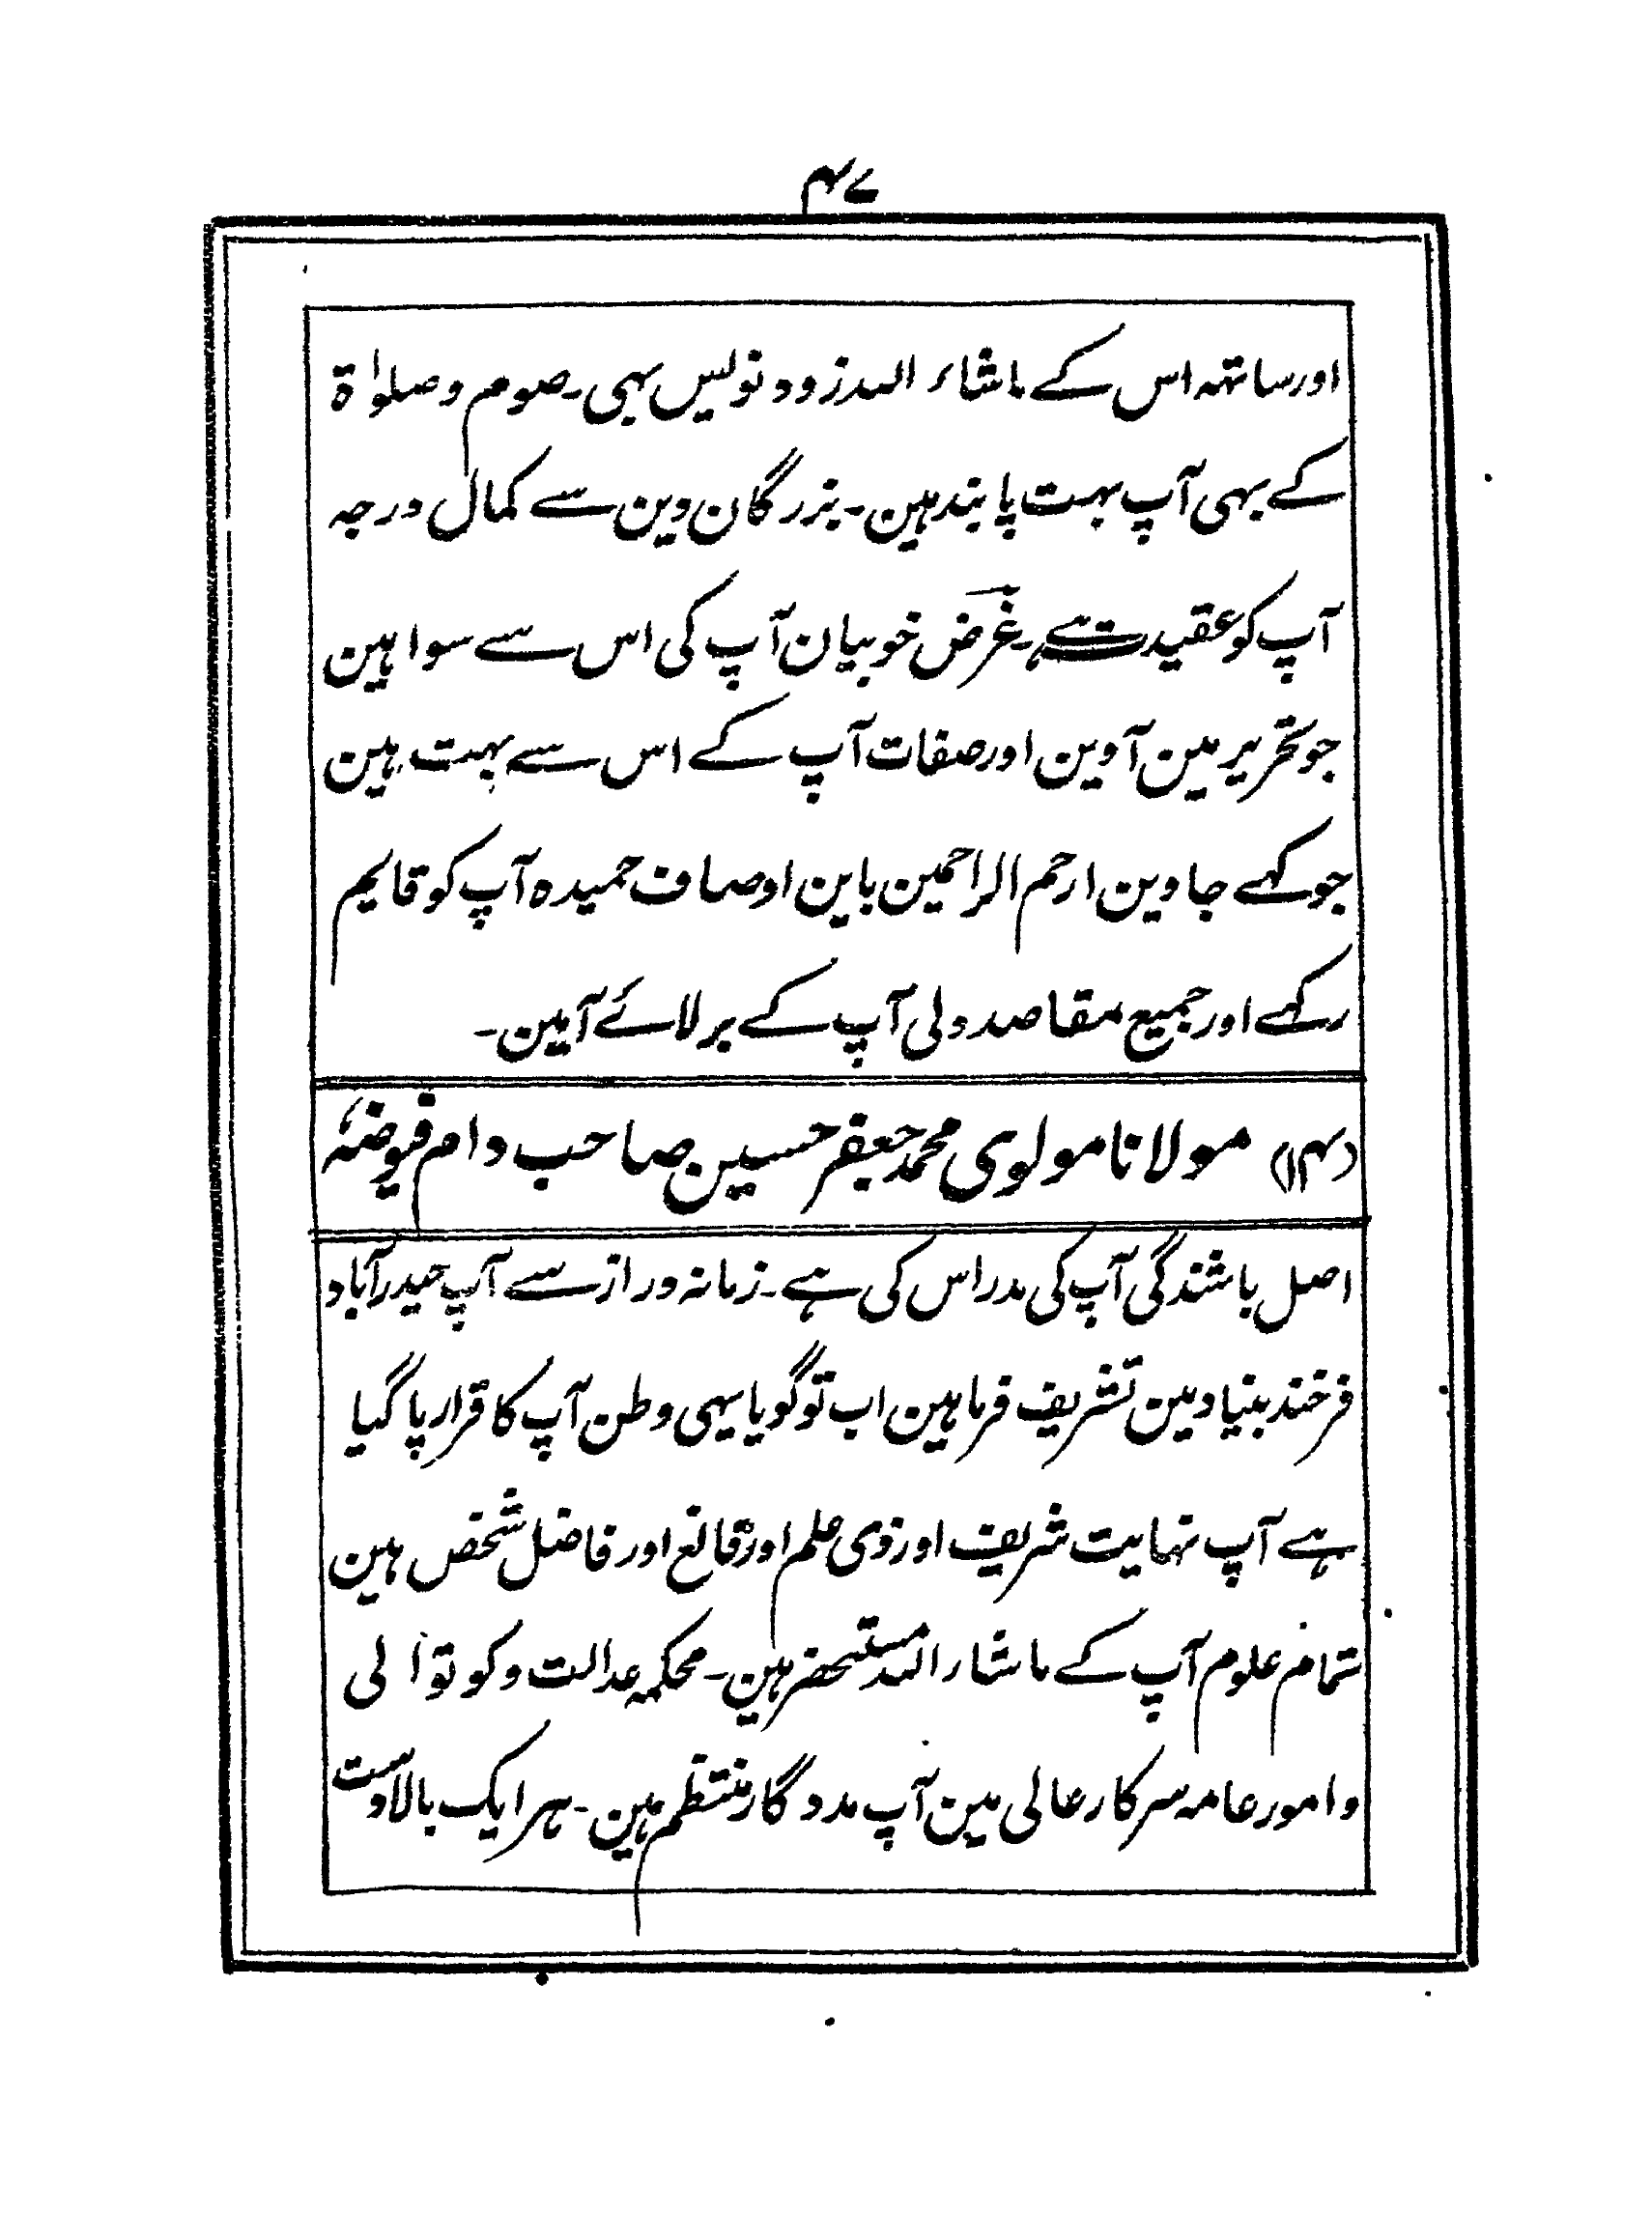 ۴۷
اور ساتہہ اس کے ماشاء اللہ زود نویس بہی۔ صوم و صلوٰۃ
کے بہی آپ بہت پابند ہین۔ بزرگان دین سے کمال درجہ
آپ کو عقیدت ہے۔ غرض خوبیان آپ کی اس سے سوا ہین
جو تحریر مین آوین اور صفات آپ کے اس سے بہت ہین
جو کہے جاوین ارحم الراحمین باین اوصاف حمیدہ آپ کو قایم
رکہے اور جمیع مقاصد دلی آپ کے بر لائے آمین۔
(۱۴) مولانا مولوی محمد جعفر حسین صاحب دام فیوضہٗ
اصل باشندگی آپ کی مدراس کی ہے۔ زمانہ دراز سے آپ حیدرآباد
فرخندہ بنیاد مین تشریف فرما ہین اب تو گویا یہی وطن آپ کا قرار پا گیا
ہے آپ نہایت شریف اور ذی علم اور قانع اور فاضل شخص ہین
تمام علوم آپ کے ماشاء اللہ مستحضر ہین۔ محکمہ عدالت و کوتوالی
و امور عامہ سرکار عالی مین آپ مددگار منتظم ہین۔ ہر ایک بالادست